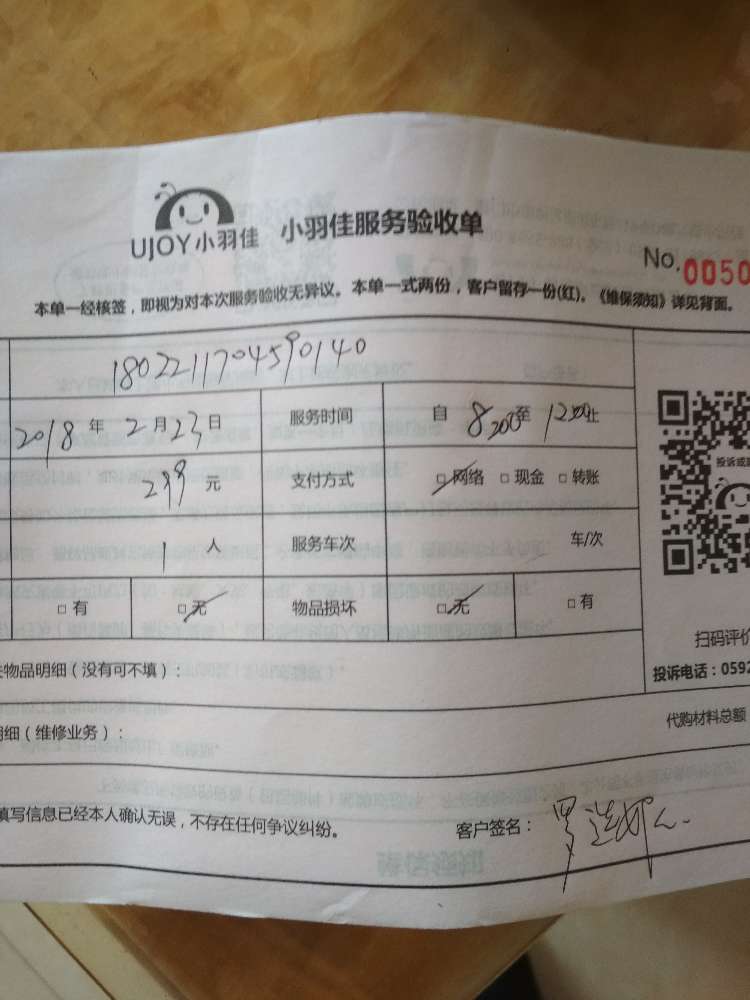 UJOY小羽佳 小羽佳服务验收单
No. 0050
本单一经核签，即视为对本次服务验收无异议。本单一式两份，客户留存一份(红)。《维保须知》详见背面。
1802211704590140
2018 年 2 月 23 日 服务时间 自 8:00 至 12:00 止
299 元 支付方式 □ 网络 □ 现金 □ 转账
1 人 服务车次 车/次
□ 有 □ 无 物品损坏 □ 无 □ 有
投诉或
扫码评价
物品明细（没有可不填）：
投诉电话：0592
明细（维修业务）：
代购材料总额
填写信息已经本人确认无误，不存在任何争议纠纷。 客户签名：